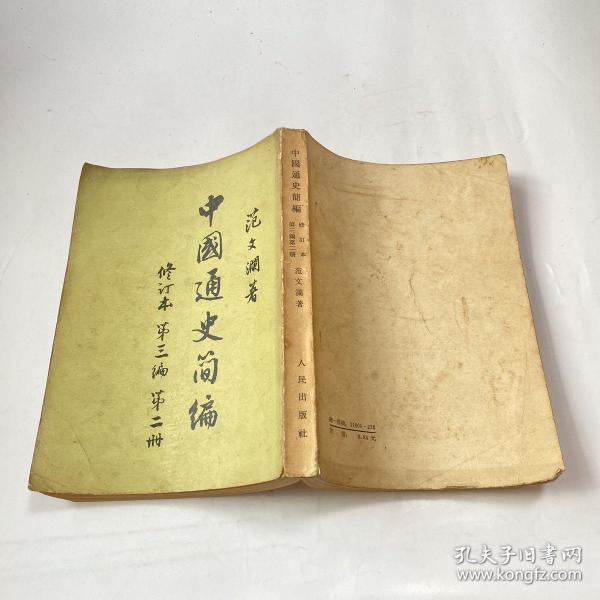 范文瀾著
中國通史简编
修订本 第三編 第二册
中國通史簡編
修訂本
第三編第二册
范文瀾著
人民出版社
統一書號：11001·238
定價：0.84元
孔夫子旧书网
www.kongfz.com